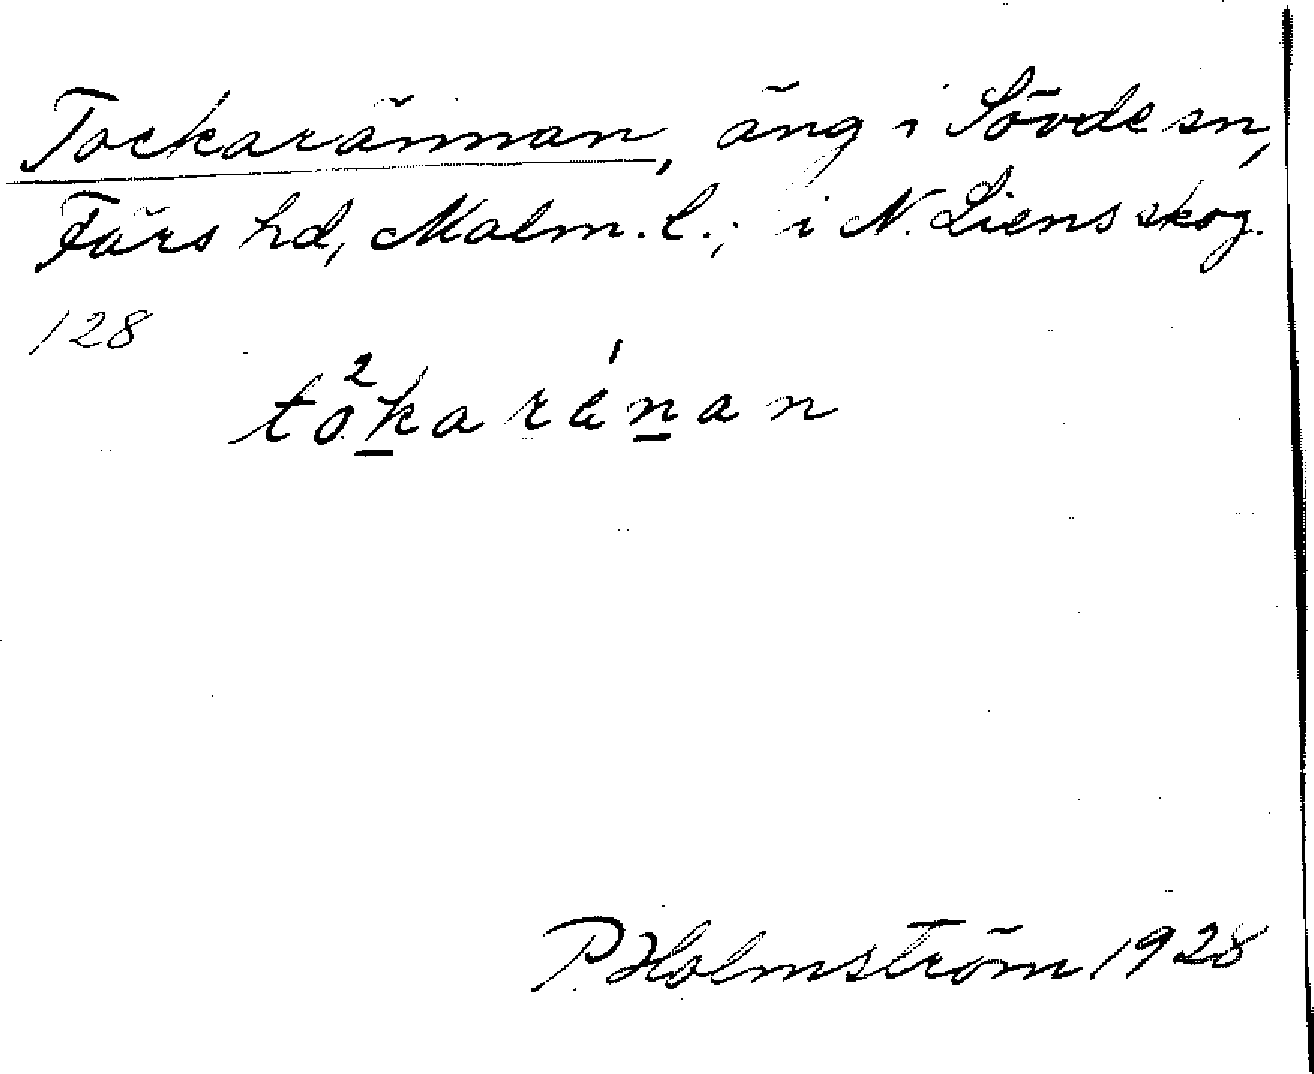 Tockarännan, äng i Sövde sn,
Färs hd, Malm. l.; i N. Liens skog.
128
to²karä́nan
P. Holmström 1928